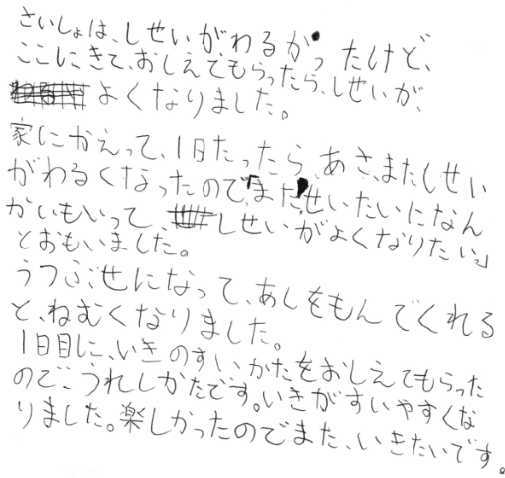 さいしょは、しせいが、わるかったけど、
ここにきて、おしえてもらったら、しせいが、
よくなりました。
家にかえって、1日たったら、あさ、またしせい
がわるくなったので、「また、せいたいになん
かいもいって、しせいがよくなりたい」
とおもいました。
うつぶせになって、あしをもんでくれる
と、ねむくなりました。
1日目に、いきのすいかたをおしえてもらった
ので、うれしかたです。いきがすいやすくな
りました。楽しかったのでまた、いきたいです。